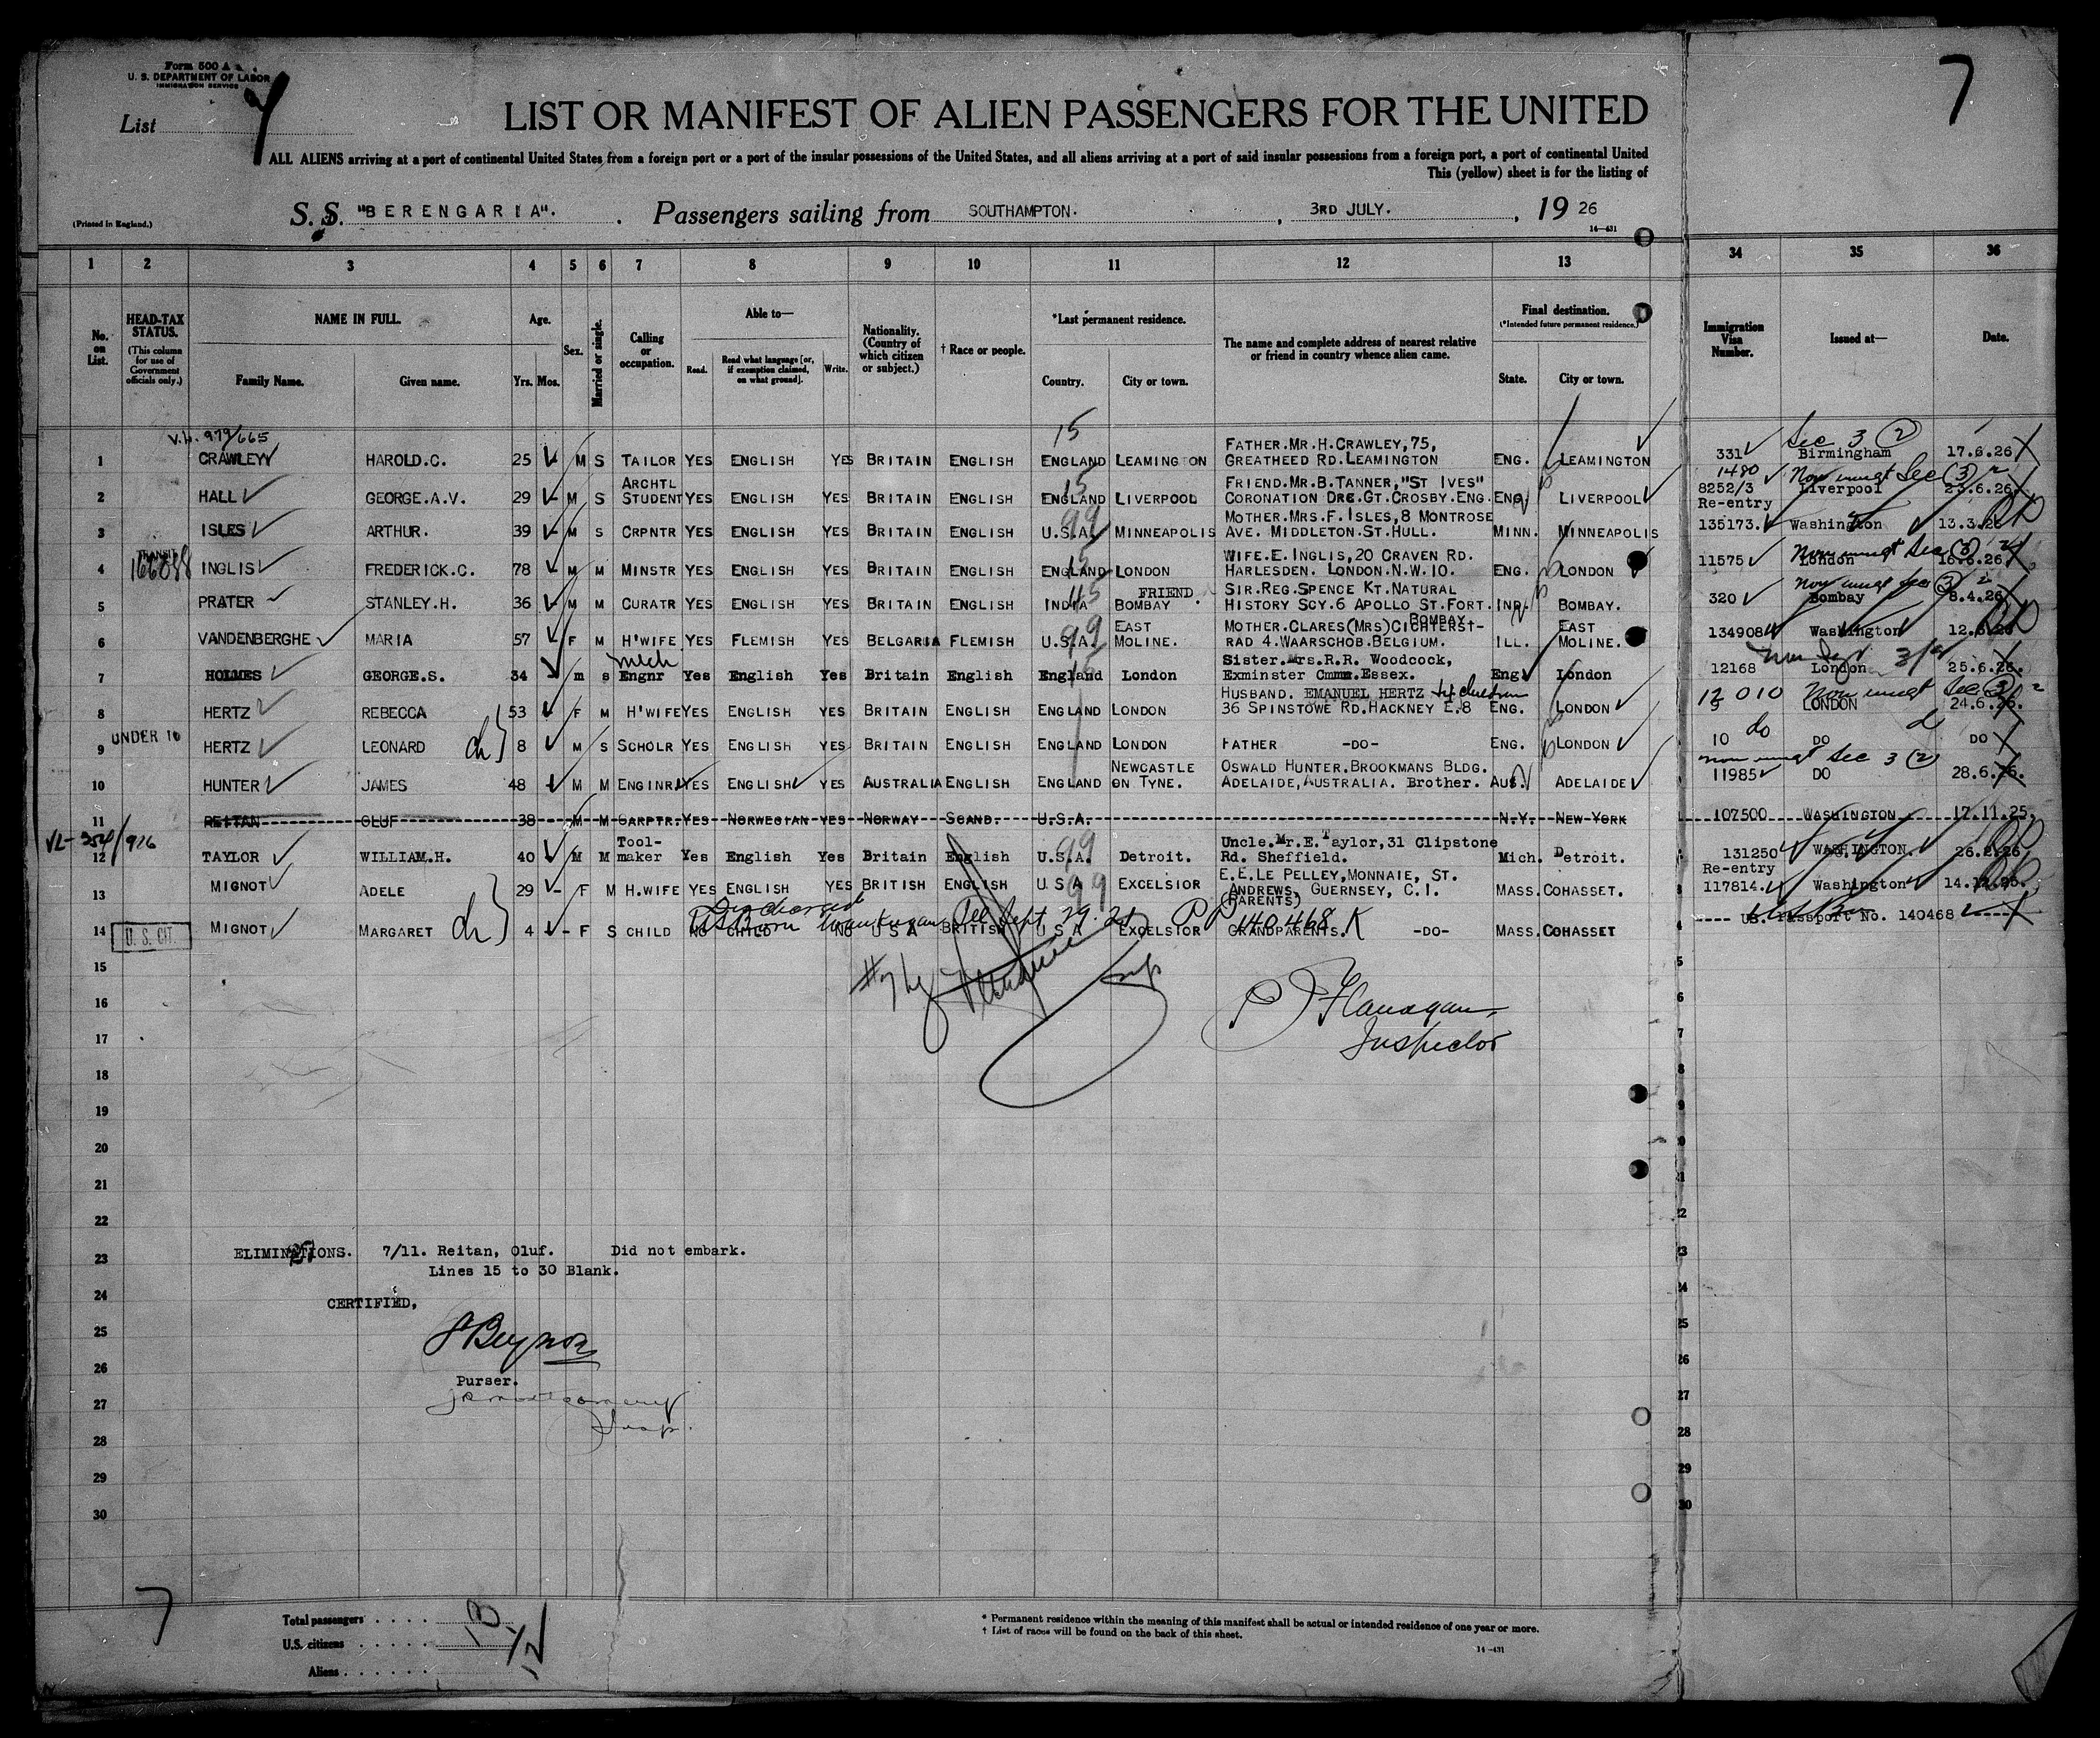 Form 500 A
U. S. DEPARTMENT OF LABOR
IMMIGRATION SERVICE
7
7
List
LIST OR MANIFEST OF ALIEN PASSENGERS FOR THE UNITED
ALL ALIENS arriving at a port of continental United States from a foreign port or a port of the insular possessions of the United States, and all aliens arriving at a port of said insular possessions from a foreign port, a port of continental United
This (yellow) sheet is for the listing of
(Printed in England.)
S. S. "BERENGARIA". Passengers sailing from SOUTHAMPTON. , 3RD JULY. , 19 26
14—431
1 2 3 4 5 6 7 8 9 10 11 12 13 34 35 36
No. on List.
HEAD-TAX STATUS.
(This column for use of Government officials only.)
NAME IN FULL.
Family Name. Given name.
Age.
Yrs. Mos.
Sex.
Married or single.
Calling or occupation.
Able to—
Read. Read what language [or, if exemption claimed, on what ground]. Write.
Nationality. (Country of which citizen or subject.)
† Race or people.
*Last permanent residence.
Country. City or town.
The name and complete address of nearest relative or friend in country whence alien came.
Final destination.
(*Intended future permanent residence.)
State. City or town.
Immigration Visa Number.
Issued at—
Date.
V.L. 979/665 15 Sec 3 (2)
FATHER.MR.H.CRAWLEY,75,
1 CRAWLEY HAROLD.C. 25 M S TAILOR YES ENGLISH YES BRITAIN ENGLISH ENGLAND LEAMINGTON GREATHEED RD.LEAMINGTON ENG. LEAMINGTON 331 Birmingham 17.6.26
ARCHTL 15 FRIEND.MR.B.TANNER,"ST IVES" 1480 Sec (3) 2
2 HALL GEORGE.A.V. 29 M S STUDENT YES ENGLISH YES BRITAIN ENGLISH ENGLAND LIVERPOOL CORONATION DRE.GT.CROSBY.ENG. ENG. LIVERPOOL 8252/3 Liverpool 23.6.26.
99 MOTHER.MRS.F.ISLES,8 MONTROSE Re-entry
3 ISLES ARTHUR. 39 M S CRPNTR YES ENGLISH YES BRITAIN ENGLISH U.S.A. MINNEAPOLIS AVE. MIDDLETON.ST.HULL. MINN. MINNEAPOLIS 135173. Washington 13.3.26
TRANSIT WIFE.E.INGLIS,20 CRAVEN RD. Sec (3) 2
4 INGLIS FREDERICK.C. 78 M M MINSTR YES ENGLISH YES BRITAIN ENGLISH ENGLAND LONDON HARLESDEN. LONDON.N.W.10. ENG. LONDON 11575 London 16.6.26
FRIEND. SIR.REG.SPENCE KT.NATURAL
5 PRATER STANLEY.H. 36 M M CURATR YES ENGLISH YES BRITAIN ENGLISH INDIA BOMBAY HISTORY SCY.6 APOLLO ST.FORT. IND. BOMBAY. 320 Bombay 8.4.26
BOMBAY
99 EAST MOTHER.CLARES(MRS)CICHTERST- EAST
6 VANDENBERGHE MARIA 57 F M H'WIFE YES FLEMISH YES BELGARIA FLEMISH U.S.A. MOLINE. RAD 4.WAARSCHOB.BELGIUM. ILL. MOLINE. 134908 Washington
mech Sister.Mrs.R.R. Woodcock,
7 HOLMES GEORGE.S. 34 m s Engnr Yes English Yes Britain English England London Exminster Cmmm.Essex. Eng. London 12168 London 25.6.26.
HUSBAND. EMANUEL HERTZ + children 12010
8 HERTZ REBECCA 53 F M H'WIFE YES ENGLISH YES BRITAIN ENGLISH ENGLAND LONDON 36 SPINSTOWE RD.HACKNEY E.8 ENG. LONDON LONDON 24.6.26.
UNDER 16
9 HERTZ LEONARD ch 8 M S SCHOLR YES ENGLISH YES BRITAIN ENGLISH ENGLAND LONDON FATHER -DO- ENG. LONDON 10 do DO DO
NEWCASTLE OSWALD HUNTER.BROOKMANS BLDG. Sec 3 (2)
10 HUNTER JAMES 48 M M ENGINR YES ENGLISH YES AUSTRALIA ENGLISH ENGLAND ON TYNE. ADELAIDE,AUSTRALIA. Brother. AUS. ADELAIDE 11985 DO 28.6.26.
11 REITAN OLUF 38 M M CARPTR. YES NORWEGIAN YES NORWAY SCAND. U.S.A. N.Y. NEW YORK 107500 WASHINGTON 17.11.25.
Tool- 99 Uncle.Mr.E.Taylor,31 Clipstone
12 TAYLOR WILLIAM.H. 40 M M maker Yes English Yes Britain English U.S.A. Detroit. Rd. Sheffield. Mich. Detroit. 131250 WASHINGTON. 26.2.26
99 E.E.LE PELLEY,MONNAIE, ST. Re-entry
13 MIGNOT ADELE 29 F M H.WIFE YES ENGLISH YES BRITISH ENGLISH U S A EXCELSIOR ANDREWS, GUERNSEY, C.I. MASS. COHASSET. 117814. Washington
(PARENTS)
PP 140468 K US. Passport No. 140468
14 U. S. CIT. MIGNOT MARGARET ch 4 F S CHILD NO CHILD NO U S A BRITISH U S A EXCELSIOR GRANDPARENTS. -DO- MASS. COHASSET
15
16
17
18
19
20
21
22
23
24
25
26
27
28
29
30
P J Flanagan,
Inspector
ELIMINATIONS. 7/11. Reitan, Oluf. Did not embark.
Lines 15 to 30 Blank.
CERTIFIED,
Purser.
Insp.
7
Total passengers
U.S. citizens
Aliens
* Permanent residence within the meaning of this manifest shall be actual or intended residence of one year or more.
† List of races will be found on the back of this sheet.
14—431